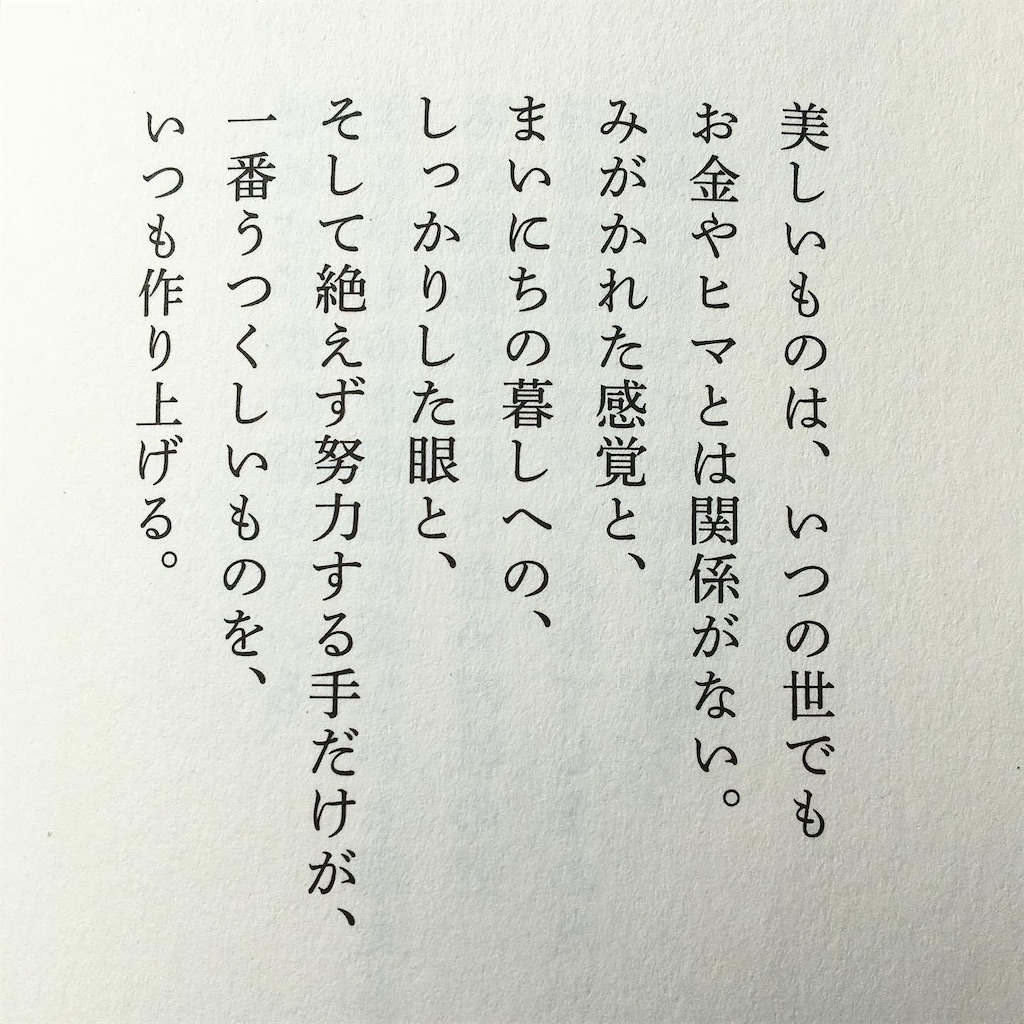 美しいものは、いつの世でも
お金やヒマとは関係がない。
みがかれた感覚と、
まいにちの暮しへの、
しっかりした眼と、
そして絶えず努力する手だけが、
一番うつくしいものを、
いつも作り上げる。